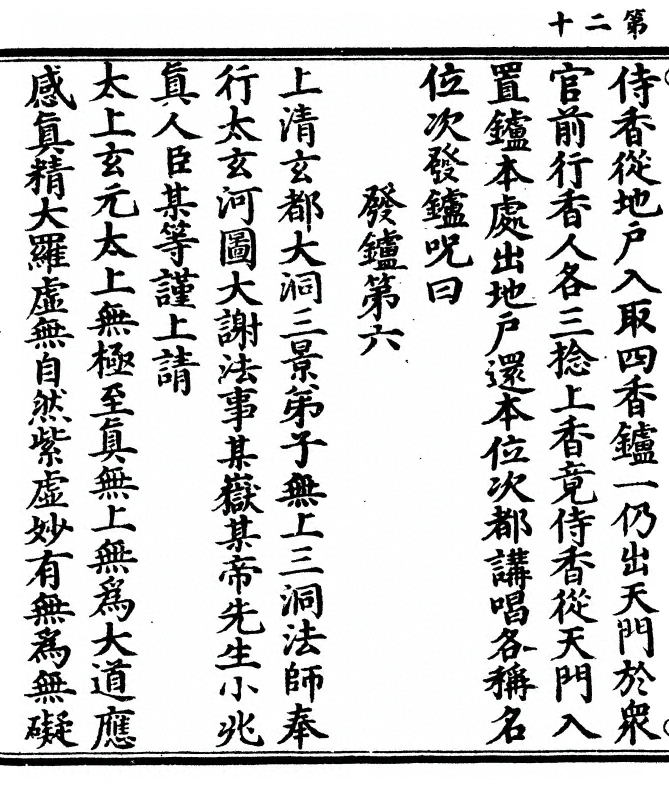 第二十
侍香從地戶入取四香鑪一仍出天門於衆
官前行香人各三捻上香竟侍香從天門入
置鑪本處出地戶還本位次都講唱各稱名
位次發鑪呪曰
發鑪第六
上清玄都大洞三景弟子無上三洞法師奉
行太玄河圖大謝法事某嶽某帝先生小兆
真人臣某等謹上請
太上玄元太上無極至真無上無為大道應
感真精大羅虛無自然紫虛妙有無為無礙